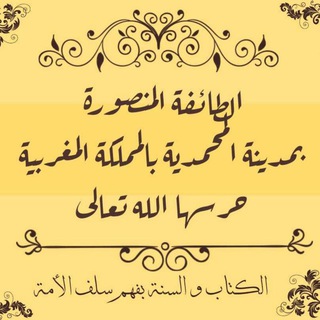 الطائفة المنصورة
بمدينة المحمدية بالمملكة المغربية
حرسها الله تعالى
الكتاب و السنة بفهم سلف الأمة